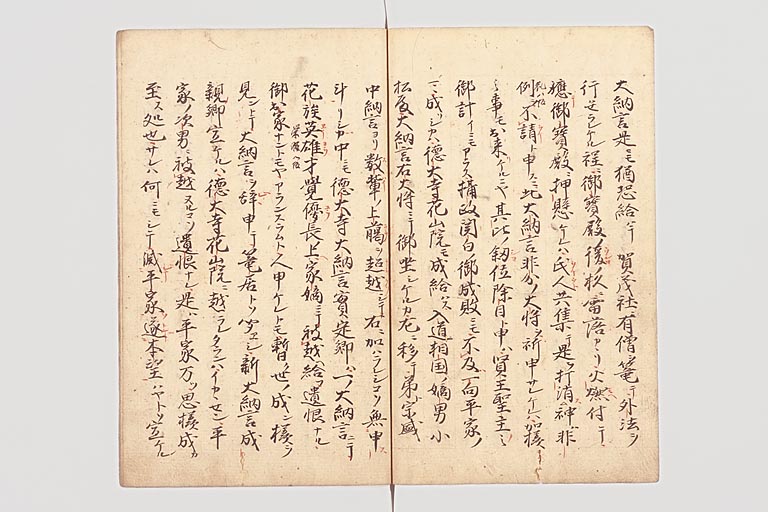 大納言是ニモ猶恐給ハテ賀茂社ニ有僧ヲ篭テ外法ヲ
行セラレケル程ニ御寳殿ノ後ノ杉ニ雷落カヽリ火燃付テ
御寳殿ニ押懸ケレハ氏人共集テ是ヲ打消ス神ハ非
例ヲ不請ト申スニ此大納言非分ノ大将ヲ祈申サレケレハ加様
ノ事モ出来ケルニヤ其比ノ叙位除目ト申ハ
御計イニモアラス摂政関白御成敗ニモ不及一向平家ノ
マヽニ成シカハ徳大寺花山院モ成給ハス入道相国ノ嫡男小
松殿大納言右大将ニテ御坐シケルカ左ニ移テ弟宗盛
中納言ヨリ数輩ノ上臈ヲ超越シテ右ニ加ハラレシコソ無申
斗リシカ中ニモ徳大寺大納言實定卿ハ一ノ大納言ニテ
花族英雄才覚優長上家嫡ニテ被越給ヲ遺恨ナル
御出家ナントモヤアランスラムト人申ケレトモ暫ク世ノ成ン様ヲ
見ントテ大納言ヲ辞申テ篭居トソ聞ヘシ新大納言成
親卿宣ケルハ徳大寺花山院ニ越ラレタランハイカヽセン平
家ノ次男ニ被越ヌルコソ遺恨ナレ是ハ平家万ツ思様成カ
至ス処也サレハ何ニモシテ滅平家遂本望ハヤトソ宣ケル